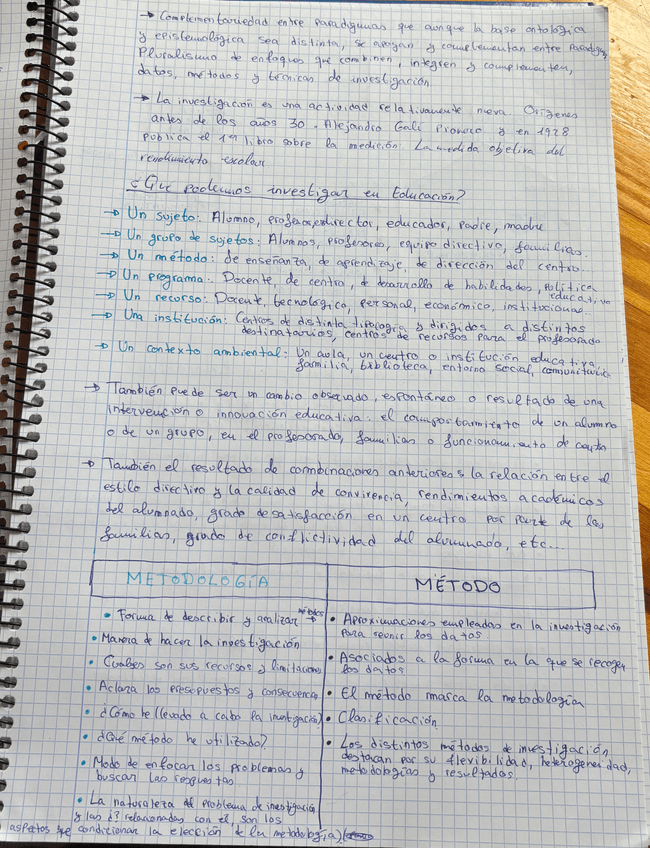 → Complementariedad entre paradigmas que aunque la base ontológica
y epistemológica sea distinta, se apoyan y complementan entre paradigmas
Pluralismo de enfoques que combinen, integren y complementen,
datos, métodos y técnicas de investigación
→ La investigación es una actividad relativamente nueva. Orígenes
antes de los años 30. Alejandro Galí Pionero y en 1928
publica el 1er libro sobre la medición. La medida objetiva del
rendimiento escolar
¿Qué podemos investigar en Educación?
→ Un sujeto: Alumno, profesor, director, educador, padre, madre
→ Un grupo de sujetos: Alumnos, profesores, equipo directivo, familias.
→ Un método: de enseñanza, de aprendizaje, de dirección del centro.
→ Un programa: Docente, de centro, de desarrollo de habilidades, política educativa
→ Un recurso: Docente, tecnológico, personal, económico, institucional.
→ Una institución: Centros de distinta tipología y dirigidos a distintos
destinatarios, centros de recursos para el profesorado
→ Un contexto ambiental: Un aula, un centro o institución educativa,
familia, biblioteca, entorno social, comunitario
→ También puede ser un cambio observado, espontáneo o resultado de una
intervención o innovación educativa: el comportamiento de un alumno
o de un grupo, en el profesorado, familias o funcionamiento de centro
→ También el resultado de combinaciones anteriores: la relación entre el
estilo directivo y la calidad de convivencia, rendimientos académicos
del alumnado, grado de satisfacción en un centro por parte de las
familias, grado de conflictividad del alumnado, etc...
METODOLOGÍA
• Forma de describir y analizar → métodos
• Manera de hacer la investigación
• Cuáles son sus recursos y limitaciones
• Aclara los presupuestos y consecuencias
• ¿Cómo he llevado a cabo la investigación?
• ¿Qué método he utilizado?
• Modo de enfocar los problemas y
buscar las respuestas
• La naturaleza del problema de investigación
y las ¿? relacionadas con él, son los
aspectos que condicionar la elección de la metodología
MÉTODO
• Aproximaciones empleadas en la investigación
para reunir los datos
• Asociados a la forma en la que se recogen
los datos
• El método marca la metodología
• Clarificación
• Los distintos métodos de investigación
destacan por su flexibilidad, heterogeneidad,
metodologías y resultados